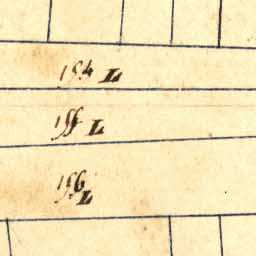 154 L
155 L
156 L